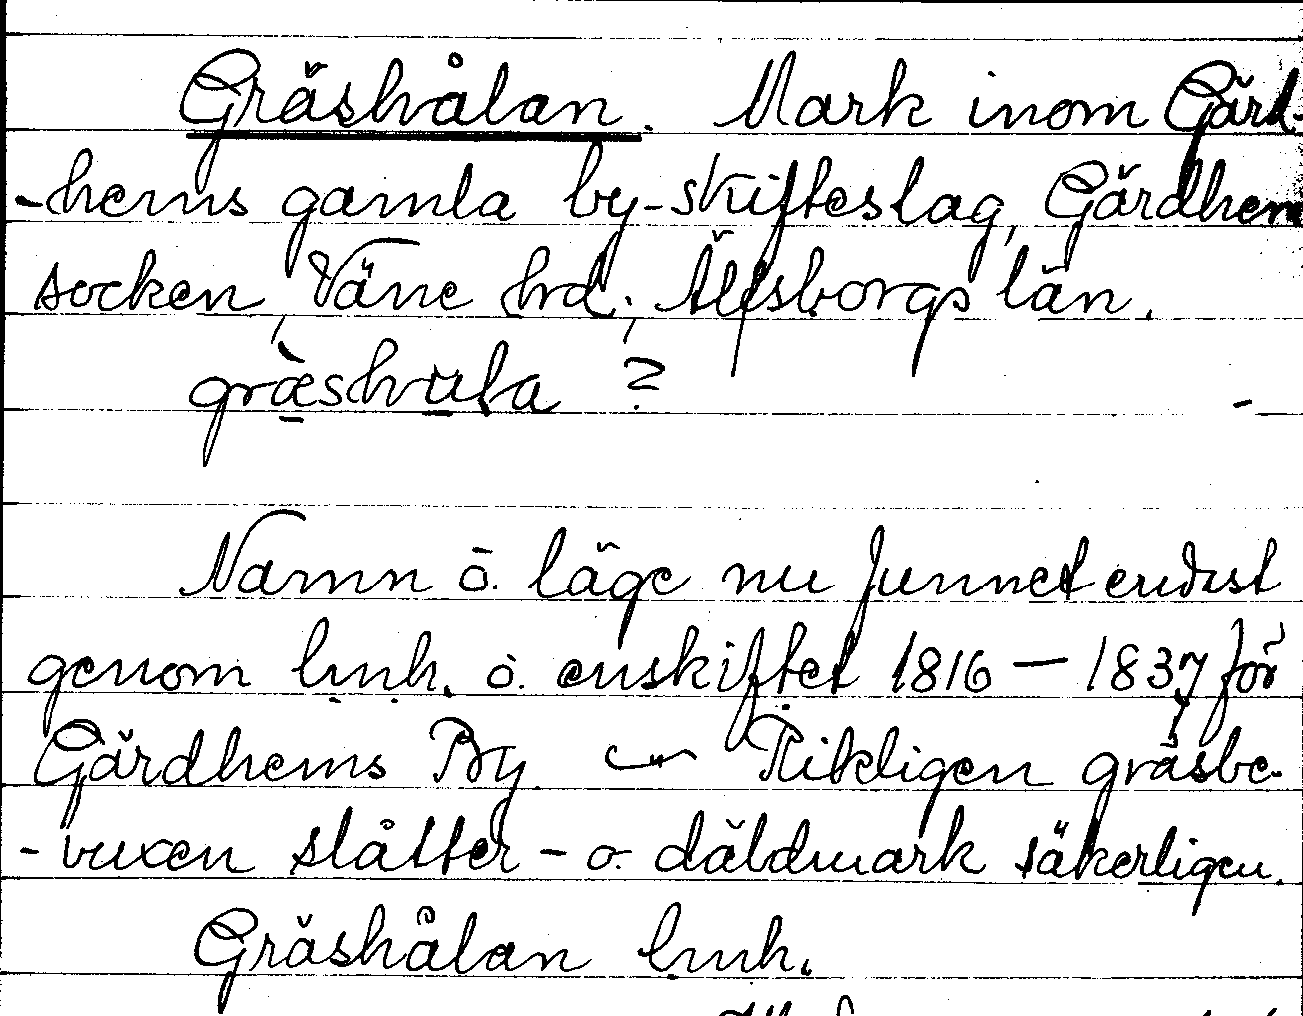 Gräshålan. Mark inom Gärd-
-hems gamla by-skifteslag, Gärdhem
socken, Väne hrd, Älfsborgs län.
?
Namn o. läge nu funnet endast
genom lmh. o. enskiftet 1816 — 1837 för
Gärdhems By. — Rikligen gräsbe-
-vuxen slåtter - o. däldmark säkerligen.
Gräshålan lmh.